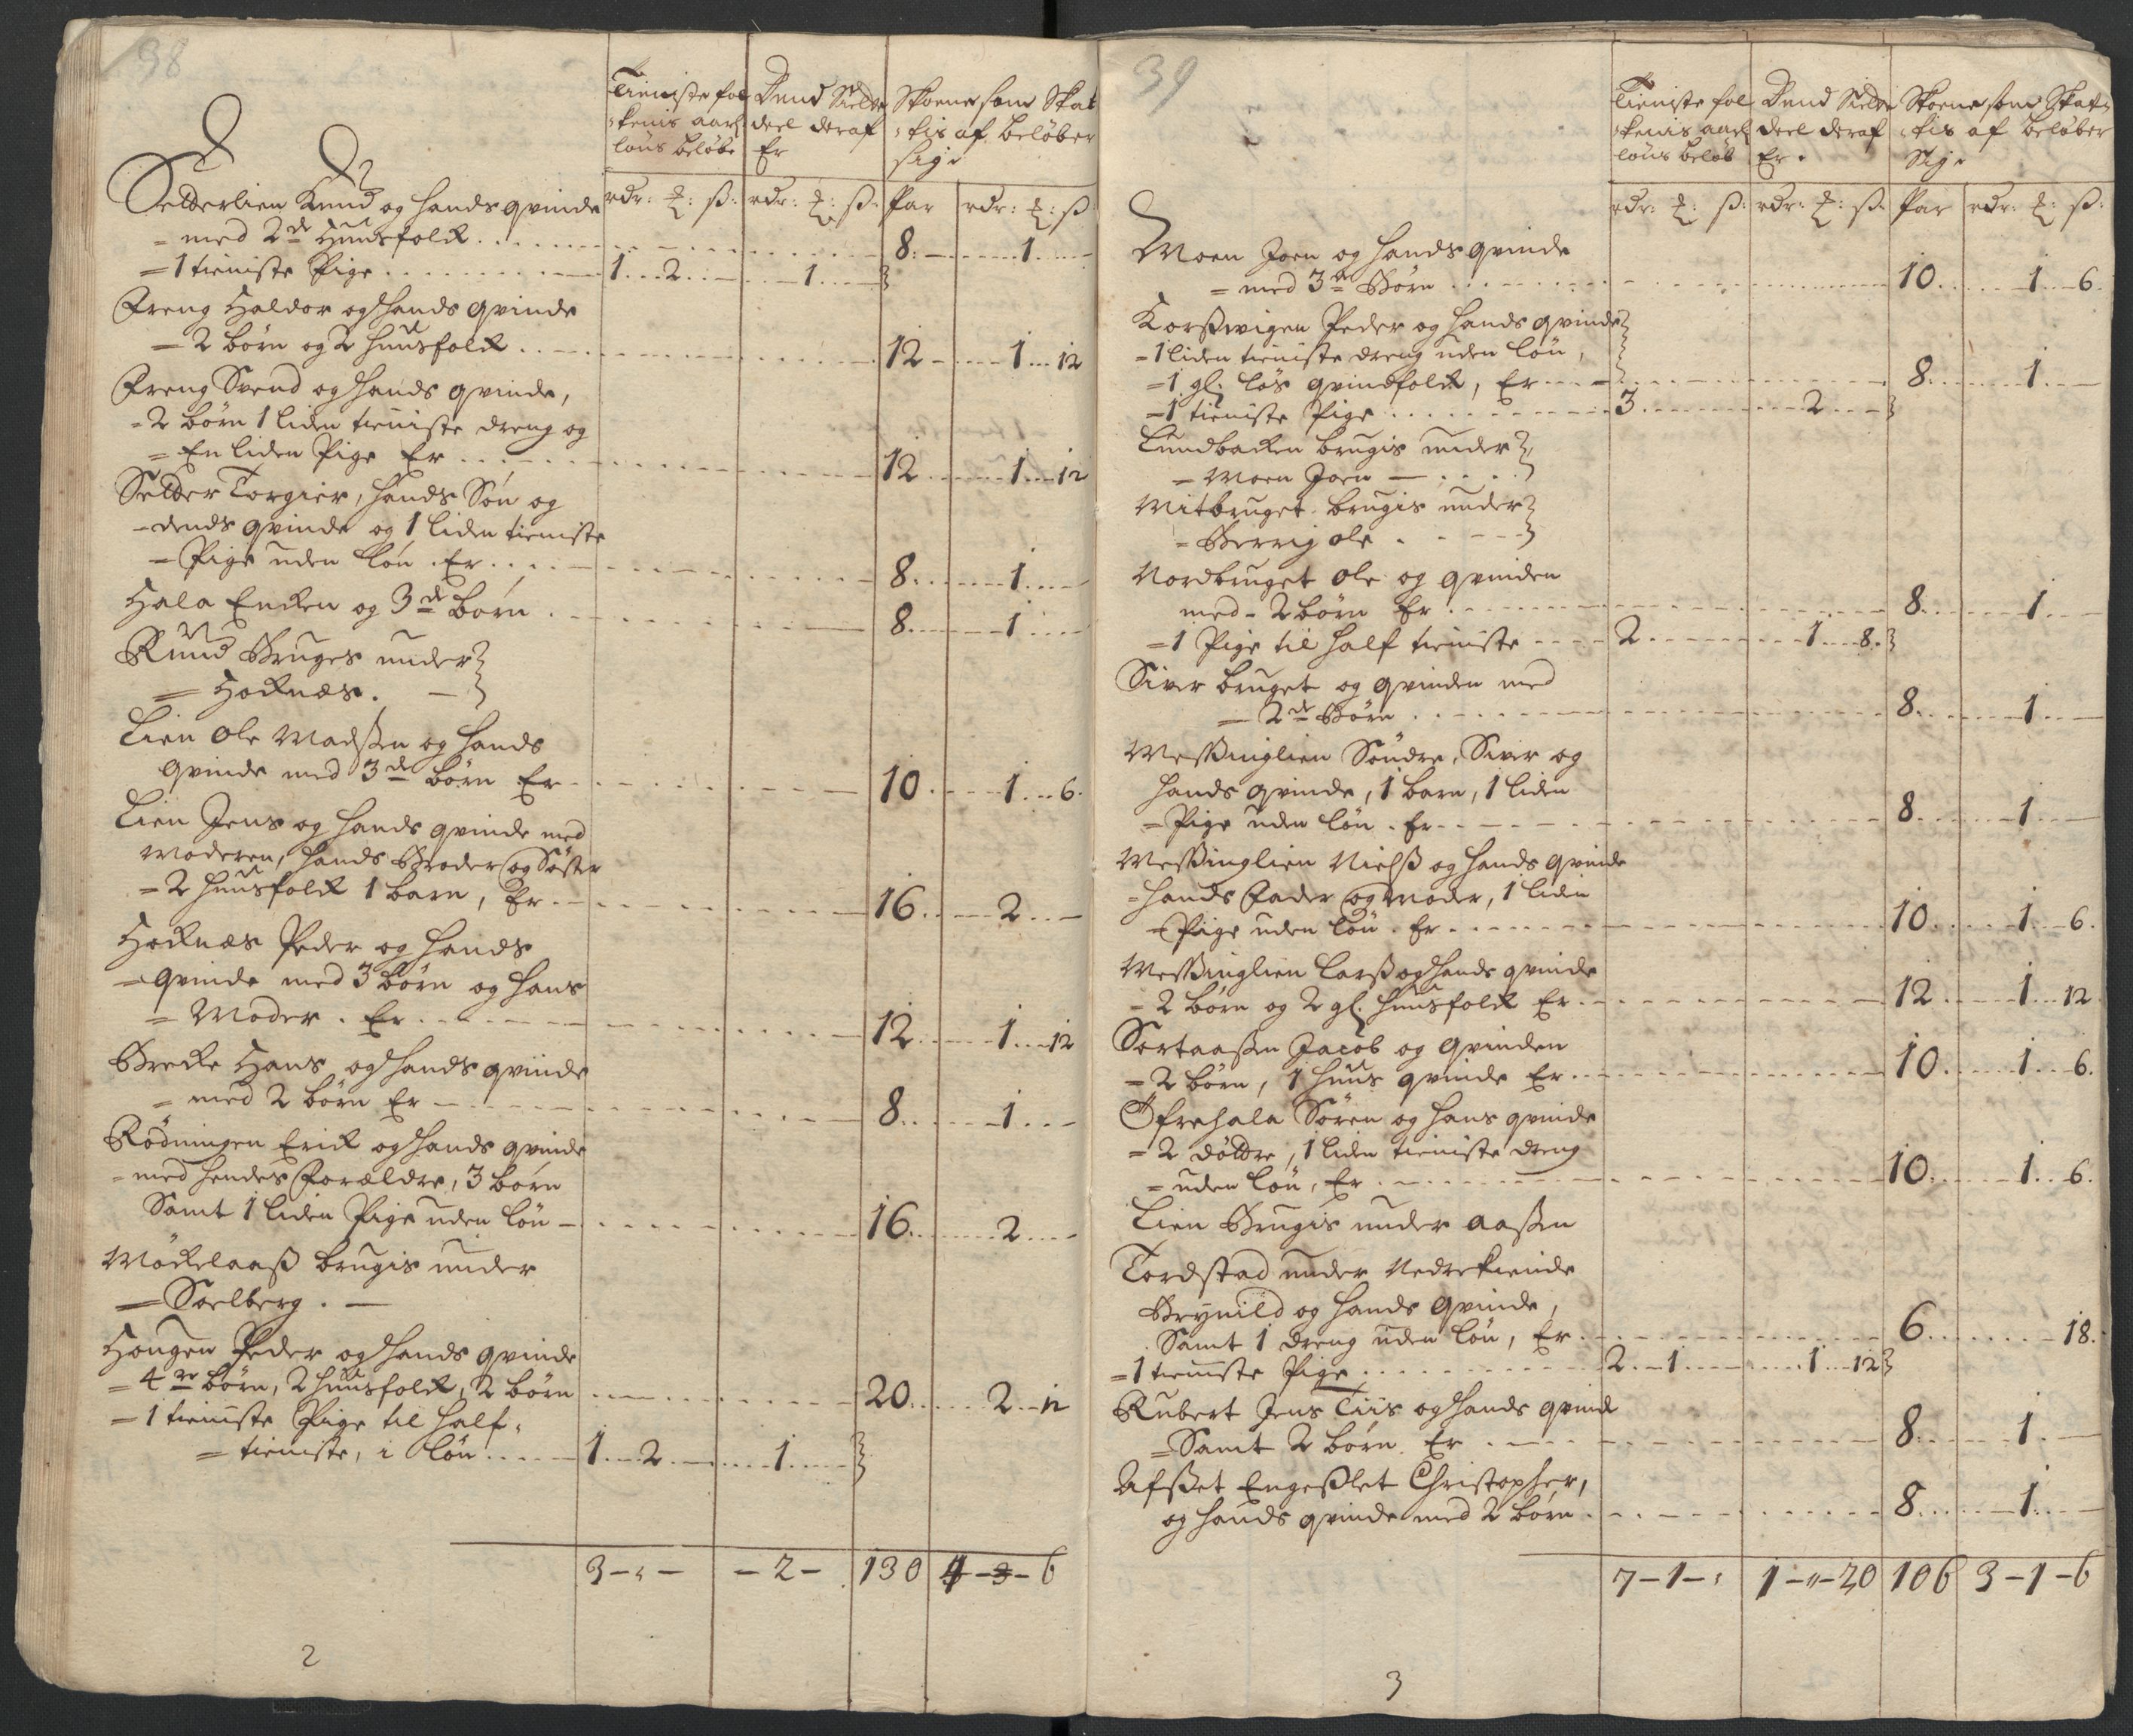 38
Tieniste fol Dend Siette Skoene som Skat
:kenis aarl deel deraf :tis af beløber
löns beløbe Er sig
rdr: ß: rdr: ß: Par rdr: ß
Setterlien Knud og hands qvinde
= med 2de huusfolk 8 1
= 1 tieniste Pige 1 2 1
Freng Haldor og hands qvinde
= 2 börn og 2 huusfolk 12 1 12
Freng Svend og hands qvinde,
= 2 börn 1 liden tieniste dreng og
= En liden Pige Er 12 1 12
Setter Torgier, hands Sön og
= dends qvinde og 1 liden tieniste
= Pige uden lön. Er 8 1
Hala Encken og 3de börn 8 1
Rund Bruges under
= Hocknæs.
Lien Ole Madsßen og hands
qvinde med 3de börn Er 10 1 6
Lien Jens og hands qvinde med
moderen, hands Broder og Söster
= 2 huusfolk 1 barn, Er 16 2
Hocknæs Peder og hands
= qvinde med 3 börn og hans
= Moder. Er 12 1 12
Brecke Hans og hands qvinde
= med 2 börn Er 8 1
Rödningen Erick og hands qvinde
= med hendes Forældre, 3 börn
Samt 1 liden Pige uden lön 16 2
Möckelaaß brugis under
= Soelberg.
Hougen Peder og hands qvinde
= 4re börn, 2 huusfolk, 2 börn 20 2 12
= 1 tieniste Pige til half-
= tieniste, i lön 1 2 1
3 - 2 - 130 4 - 3 - 6
2
39
Tieniste fol Dend Siette Skoene som Skat
:kenis aarl deel deraf :tis af beløber
löns beløb Er. Sig
rdr: ß: rdr: ß: Par rdr: ß:
Moen Joen og hands qvinde
= med 3de Börn 10 1 6
Korßwigen Peder og hands qvinde
= 1 liden tieniste dreng uden lön,
= 1 gl. lös qvindfolk, Er 8 1
= 1 tieniste Pige 3 2
Lundbacken brugis under
= Moen Joen
Mitbruget brugis under
= Berrig ole
Nordbruget Ole og qvinden
med 2 börn Er 8 1
= 1 Pige til half tieniste 2 1 8
Siver bruget og qvinden med
= 2de Börn 8 1
Messinglien Söndre, Siver og
hands qvinde, 1 barn, 1 liden
= Pige uden lön. Er 8 1
Messinglien Nielß og hands qvinde
= hands Fader og Moder, 1 liden
= Pige uden lön. Er 10 1 6
Messinglien Larß og hands qvinde
= 2 börn og 2 gl. huusfolk Er 12 1 12
Sortaaßen Jacob og qvinden
= 2 börn, 1 huus qvinde Er 10 1 6
Öfrehala Sören og hans qvinde
= 2 döttre, 1 liden tieniste dreng
= uden lön, Er 10 1 6
Lien Brugis under aaßen
Tordstad under Nedrekiende
Brynild og hands qvinde,
Samt 1 dreng uden lön, Er 6 18
= 1 tieniste Pige 2 1 1 12
Rubert Jens Tiis og hands qvinde
= Samt 2 börn. Er 8 1
Afßet Engeßlet Christopher,
og hands qvinde med 2 börn 8 1
7-1- 1-"-20 106 3-1-6
3